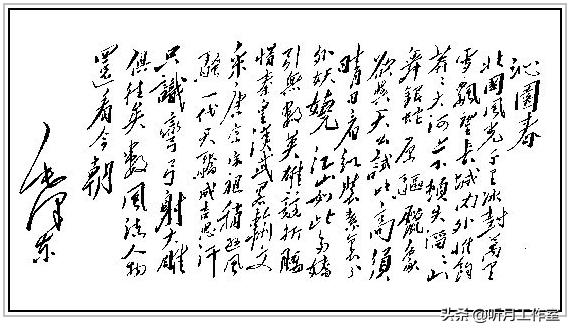 沁園春
北國風光千里冰封萬里
雪飄望長城内外惟餘
莽莽大河上下頓失滔滔山
舞銀蛇原驅臘象
欲與天公試比高須
晴日看紅裝素裹分
外妖嬈江山如此多嬌
引無數英雄競折腰
惜秦皇漢武略輸文
采唐宗宋祖稍遜風
騷一代天驕成吉思汗
只識彎弓射大雕
俱往矣數風流人物
還看今朝
毛澤東
头条@听月工作室